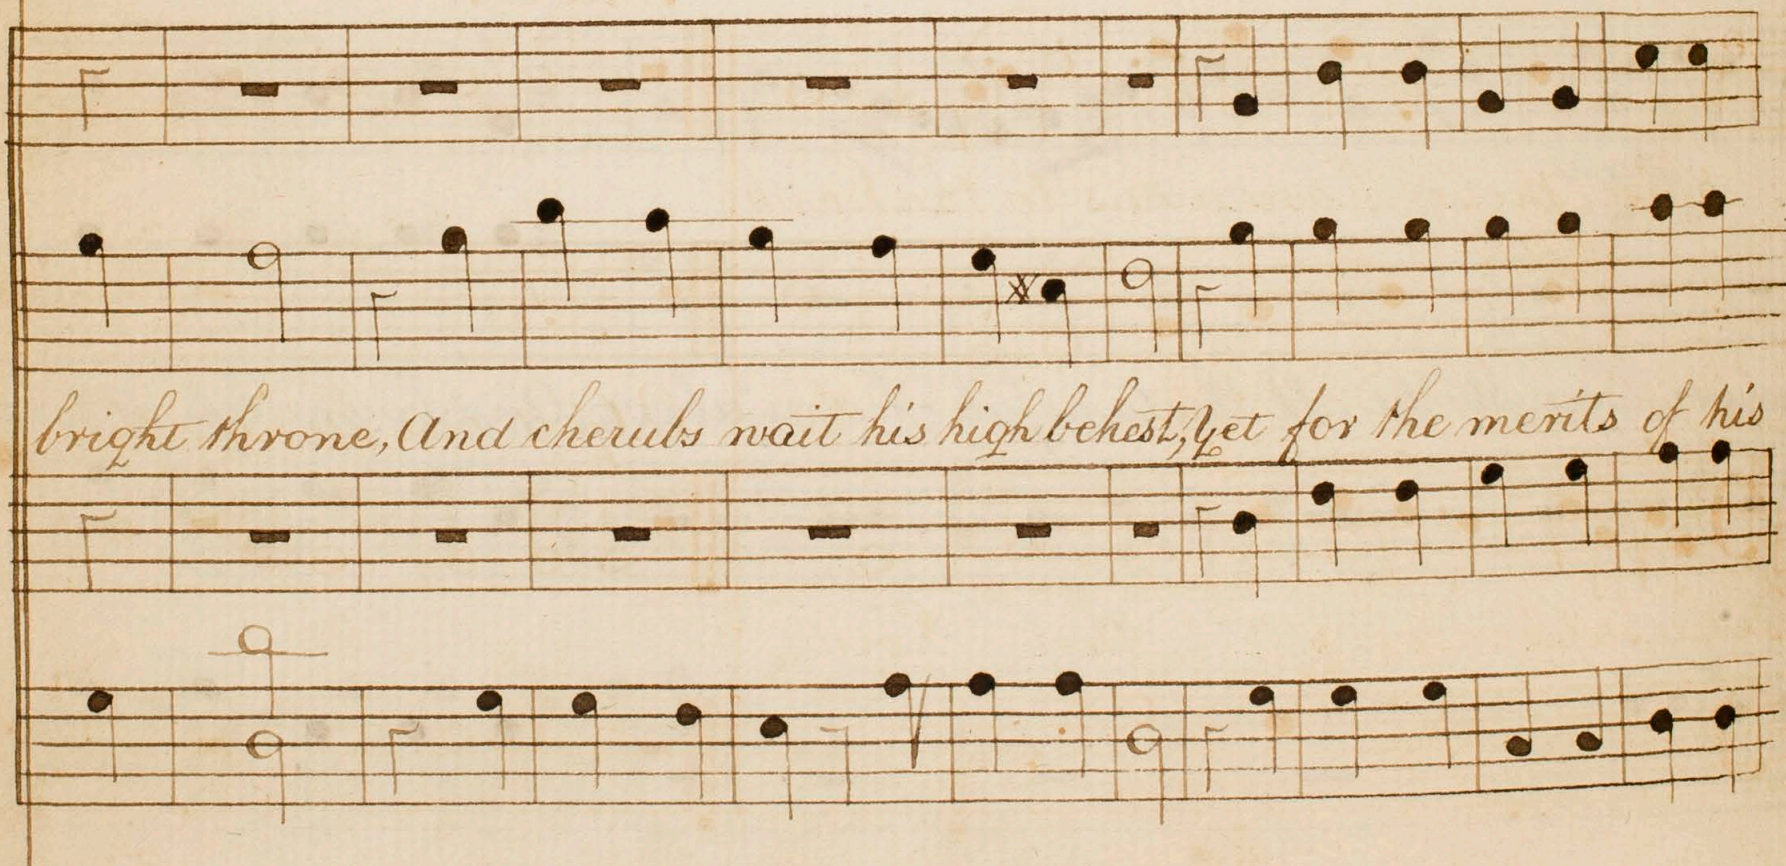 bright throne, And cherubs wait his high behest, Yet for the merits of his